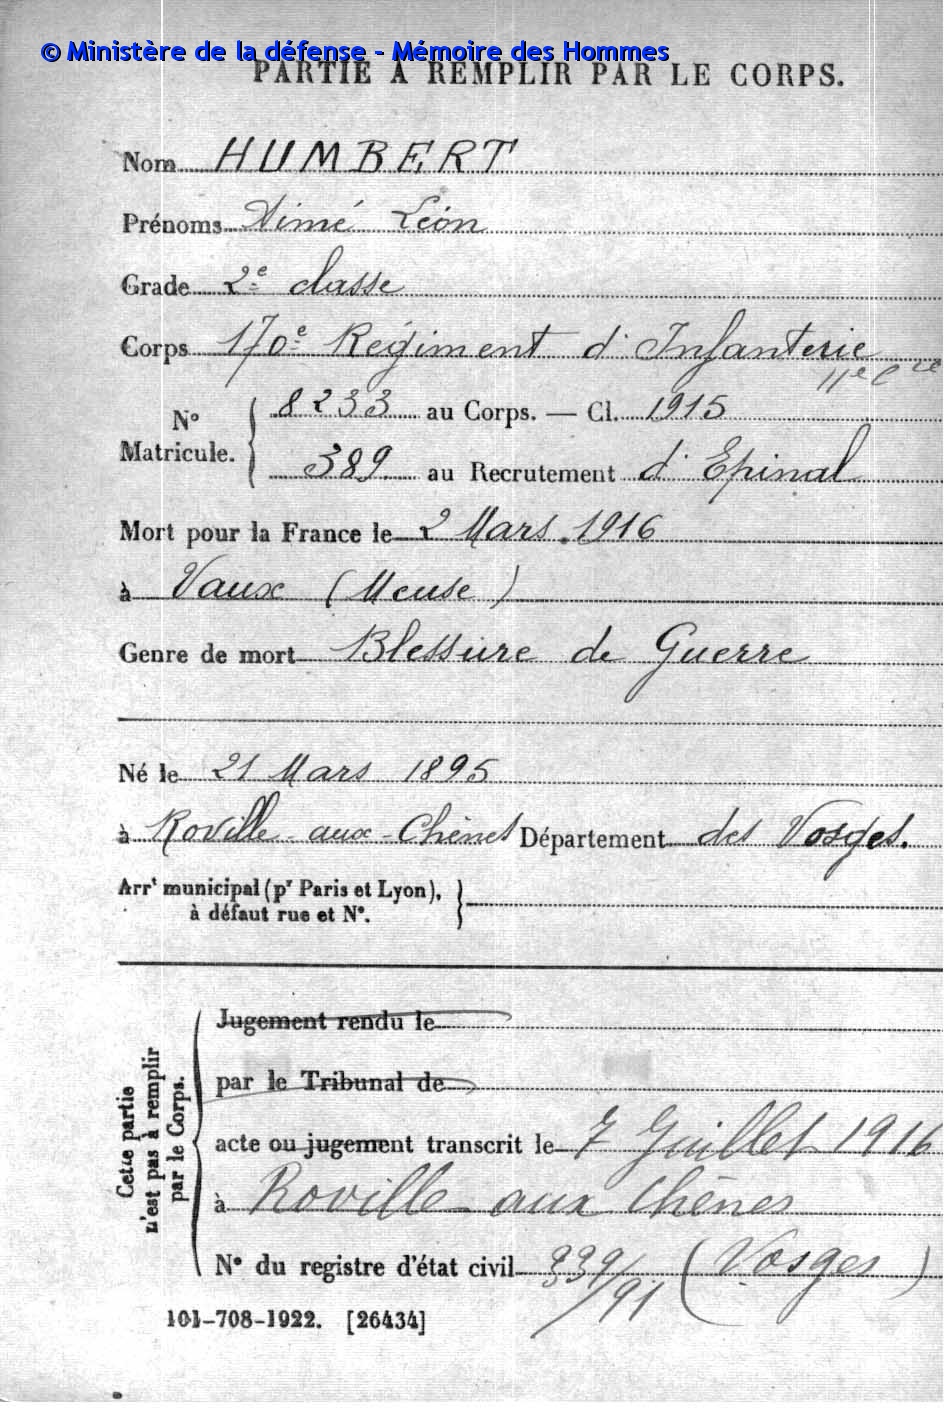 © Ministère de la défense - Mémoire des Hommes
PARTIE À REMPLIR PAR LE CORPS.
Nom HUMBERT
Prénoms Aimé Léon
Grade 2e classe
Corps 170e Régiment d'Infanterie
11e Cie
No Matricule. 8233 au Corps. — Cl. 1915
389 au Recrutement d'Epinal
Mort pour la France le 2 Mars 1916
à Vaux (Meuse)
Genre de mort Blessure de Guerre
Né le 21 Mars 1895
à Roville-aux-Chênes Département des Vosges.
Arrt municipal (pr Paris et Lyon), à défaut rue et No.
Cette partie n'est pas à remplir par le Corps.
Jugement rendu le
par le Tribunal de
acte ou jugement transcrit le 7 Juillet 1916
à Roville aux Chênes
No du registre d'état civil (Vosges)
939/91
101-708-1922. [26434]